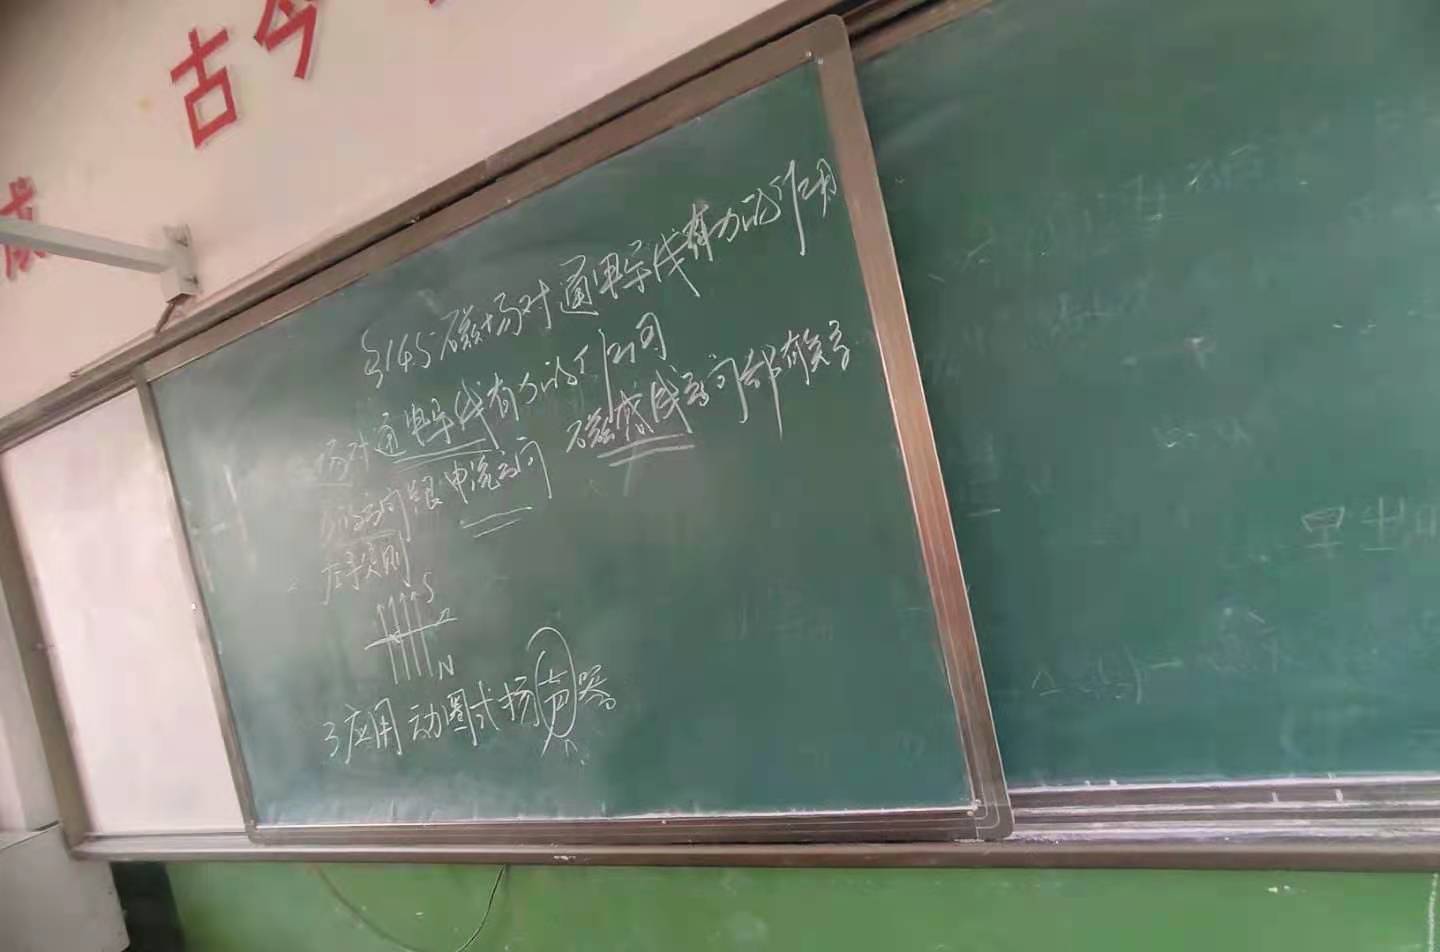 成
古今
§145磁场对通电导线有力的作用
场对通电导线有力的作用
力的方向跟电流方向 磁感线方向都有关
左手定则
S
N
3应用 动圈式扬声器